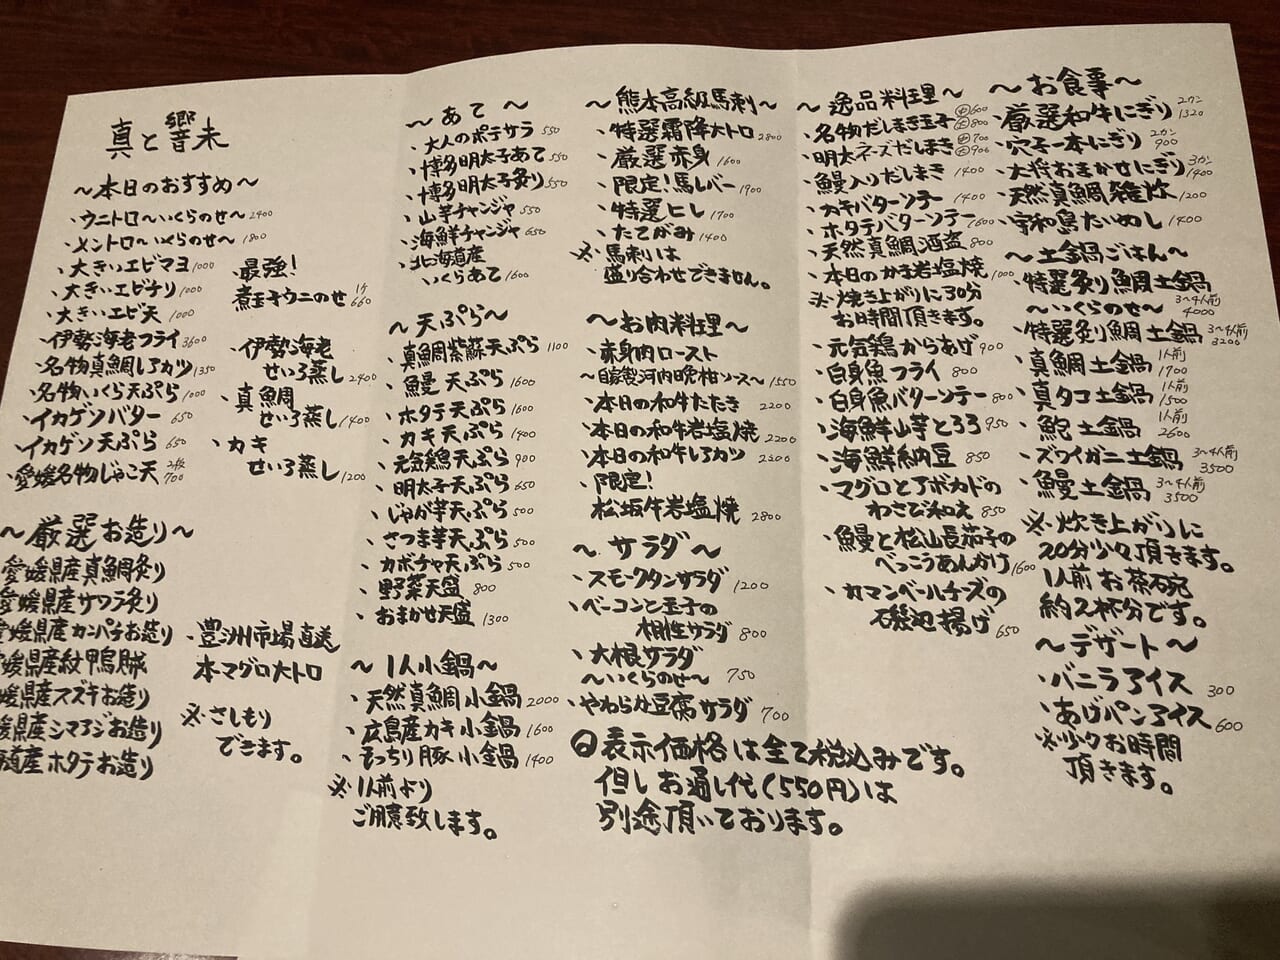 真と響未
〜本日のおすすめ〜
・ウニトロ〜いくらのせ〜 2400
・メントロ〜いくらのせ〜 1800
・大きいエビマヨ 1000
・大きいエビチリ 1000
・大きいエビ天 1000
・伊勢海老フライ 3600
・名物真鯛レアカツ 1350
・名物いくら天ぷら 1000
・イカゲソバター 650
・イカゲソ天ぷら 650
・愛媛名物じゃこ天 2枚 700
・最強!
煮玉子ウニのせ 1ケ 660
・伊勢海老
せいろ蒸し 2400
・真鯛
せいろ蒸し 1400
・カキ
せいろ蒸し 1200
〜厳選お造り〜
愛媛県産真鯛炙り
愛媛県産サワラ炙り
愛媛県産カンパチお造り
愛媛県産紋甲烏賊
愛媛県産スズキお造り
愛媛県産シマアジお造り
道産ホタテお造り
・豊洲市場直送
本マグロ大トロ
※さしもり
できます。
〜あて〜
・大人のポテサラ 550
・博多明太子あて 550
・博多明太子炙り 550
・山芋チャンジャ 550
・海鮮チャンジャ 650
・北海道産
いくらあて 1600
〜天ぷら〜
・真鯛紫蘇天ぷら 1100
・鰻天ぷら 1600
・ホタテ天ぷら 1600
・カキ天ぷら 1400
・元気鶏天ぷら 900
・明太子天ぷら 650
・じゃが芋天ぷら 500
・さつま芋天ぷら 500
・カボチャ天ぷら 500
・野菜天盛 800
・おまかせ天盛 1300
〜1人小鍋〜
・天然真鯛小鍋 2000
・広島産カキ小鍋 1600
・もっちり豚小鍋 1400
※1人前より
ご用意致します。
〜熊本高級馬刺〜
・特選霜降大トロ 2800
・厳選赤身 1600
・限定!馬レバー 1900
・特選ヒレ 1700
・たてがみ 1400
※馬刺は
盛り合わせできません。
〜お肉料理〜
・赤身肉ロースト
〜自家製河内晩柑ソース〜 1550
・本日の和牛たたき 2200
・本日の和牛岩塩焼 2200
・本日の和牛レアカツ 2200
・限定!
松坂牛岩塩焼 2800
〜サラダ〜
・スモークタンサラダ 1200
・ベーコンと玉子の
相性サラダ 800
・大根サラダ
〜いくらのせ〜 750
・やわらか豆腐サラダ 700
◎表示価格は全て税込みです。
但しお通し代(550円)は
別途頂いております。
〜逸品料理〜
・名物だしまき玉子 小600 大800
・明太チーズだしまき 小700 大900
・鰻入りだしまき 1400
・カキバターソテー 1400
・ホタテバターソテー 1600
・天然真鯛酒盗 800
・本日のかま岩塩焼 1000
※焼き上がりに30分
お時間頂きます。
・元気鶏からあげ 900
・白身魚フライ 800
・白身魚バターソテー 800
・海鮮山芋とろろ 950
・海鮮納豆 850
・マグロとアボカドの
わさび和え 850
・鰻と松山長茄子の
べっこうあんかけ 1600
・カマンベールチーズの
磯辺揚げ 650
〜お食事〜
・厳選和牛にぎり 2カン 1320
・穴子一本にぎり 2カン 900
・大将おまかせにぎり 3カン 1400
・天然真鯛雑炊 1200
・宇和島たいめし 1400
〜土鍋ごはん〜
・特選炙り鯛土鍋
〜いくらのせ〜 3〜4人前 4000
・特選炙り鯛土鍋 3〜4人前 3200
・真鯛土鍋 1人前 1700
・真タコ土鍋 1人前 1500
・鮑土鍋 1人前 2600
・ズワイガニ土鍋 3〜4人前 3500
・鰻土鍋 3〜4人前 3500
※炊き上がりに
20分少々頂きます。
1人前お茶碗
約2杯分です。
〜デザート〜
・バニラアイス 300
・あげパンアイス 600
※少々お時間
頂きます。